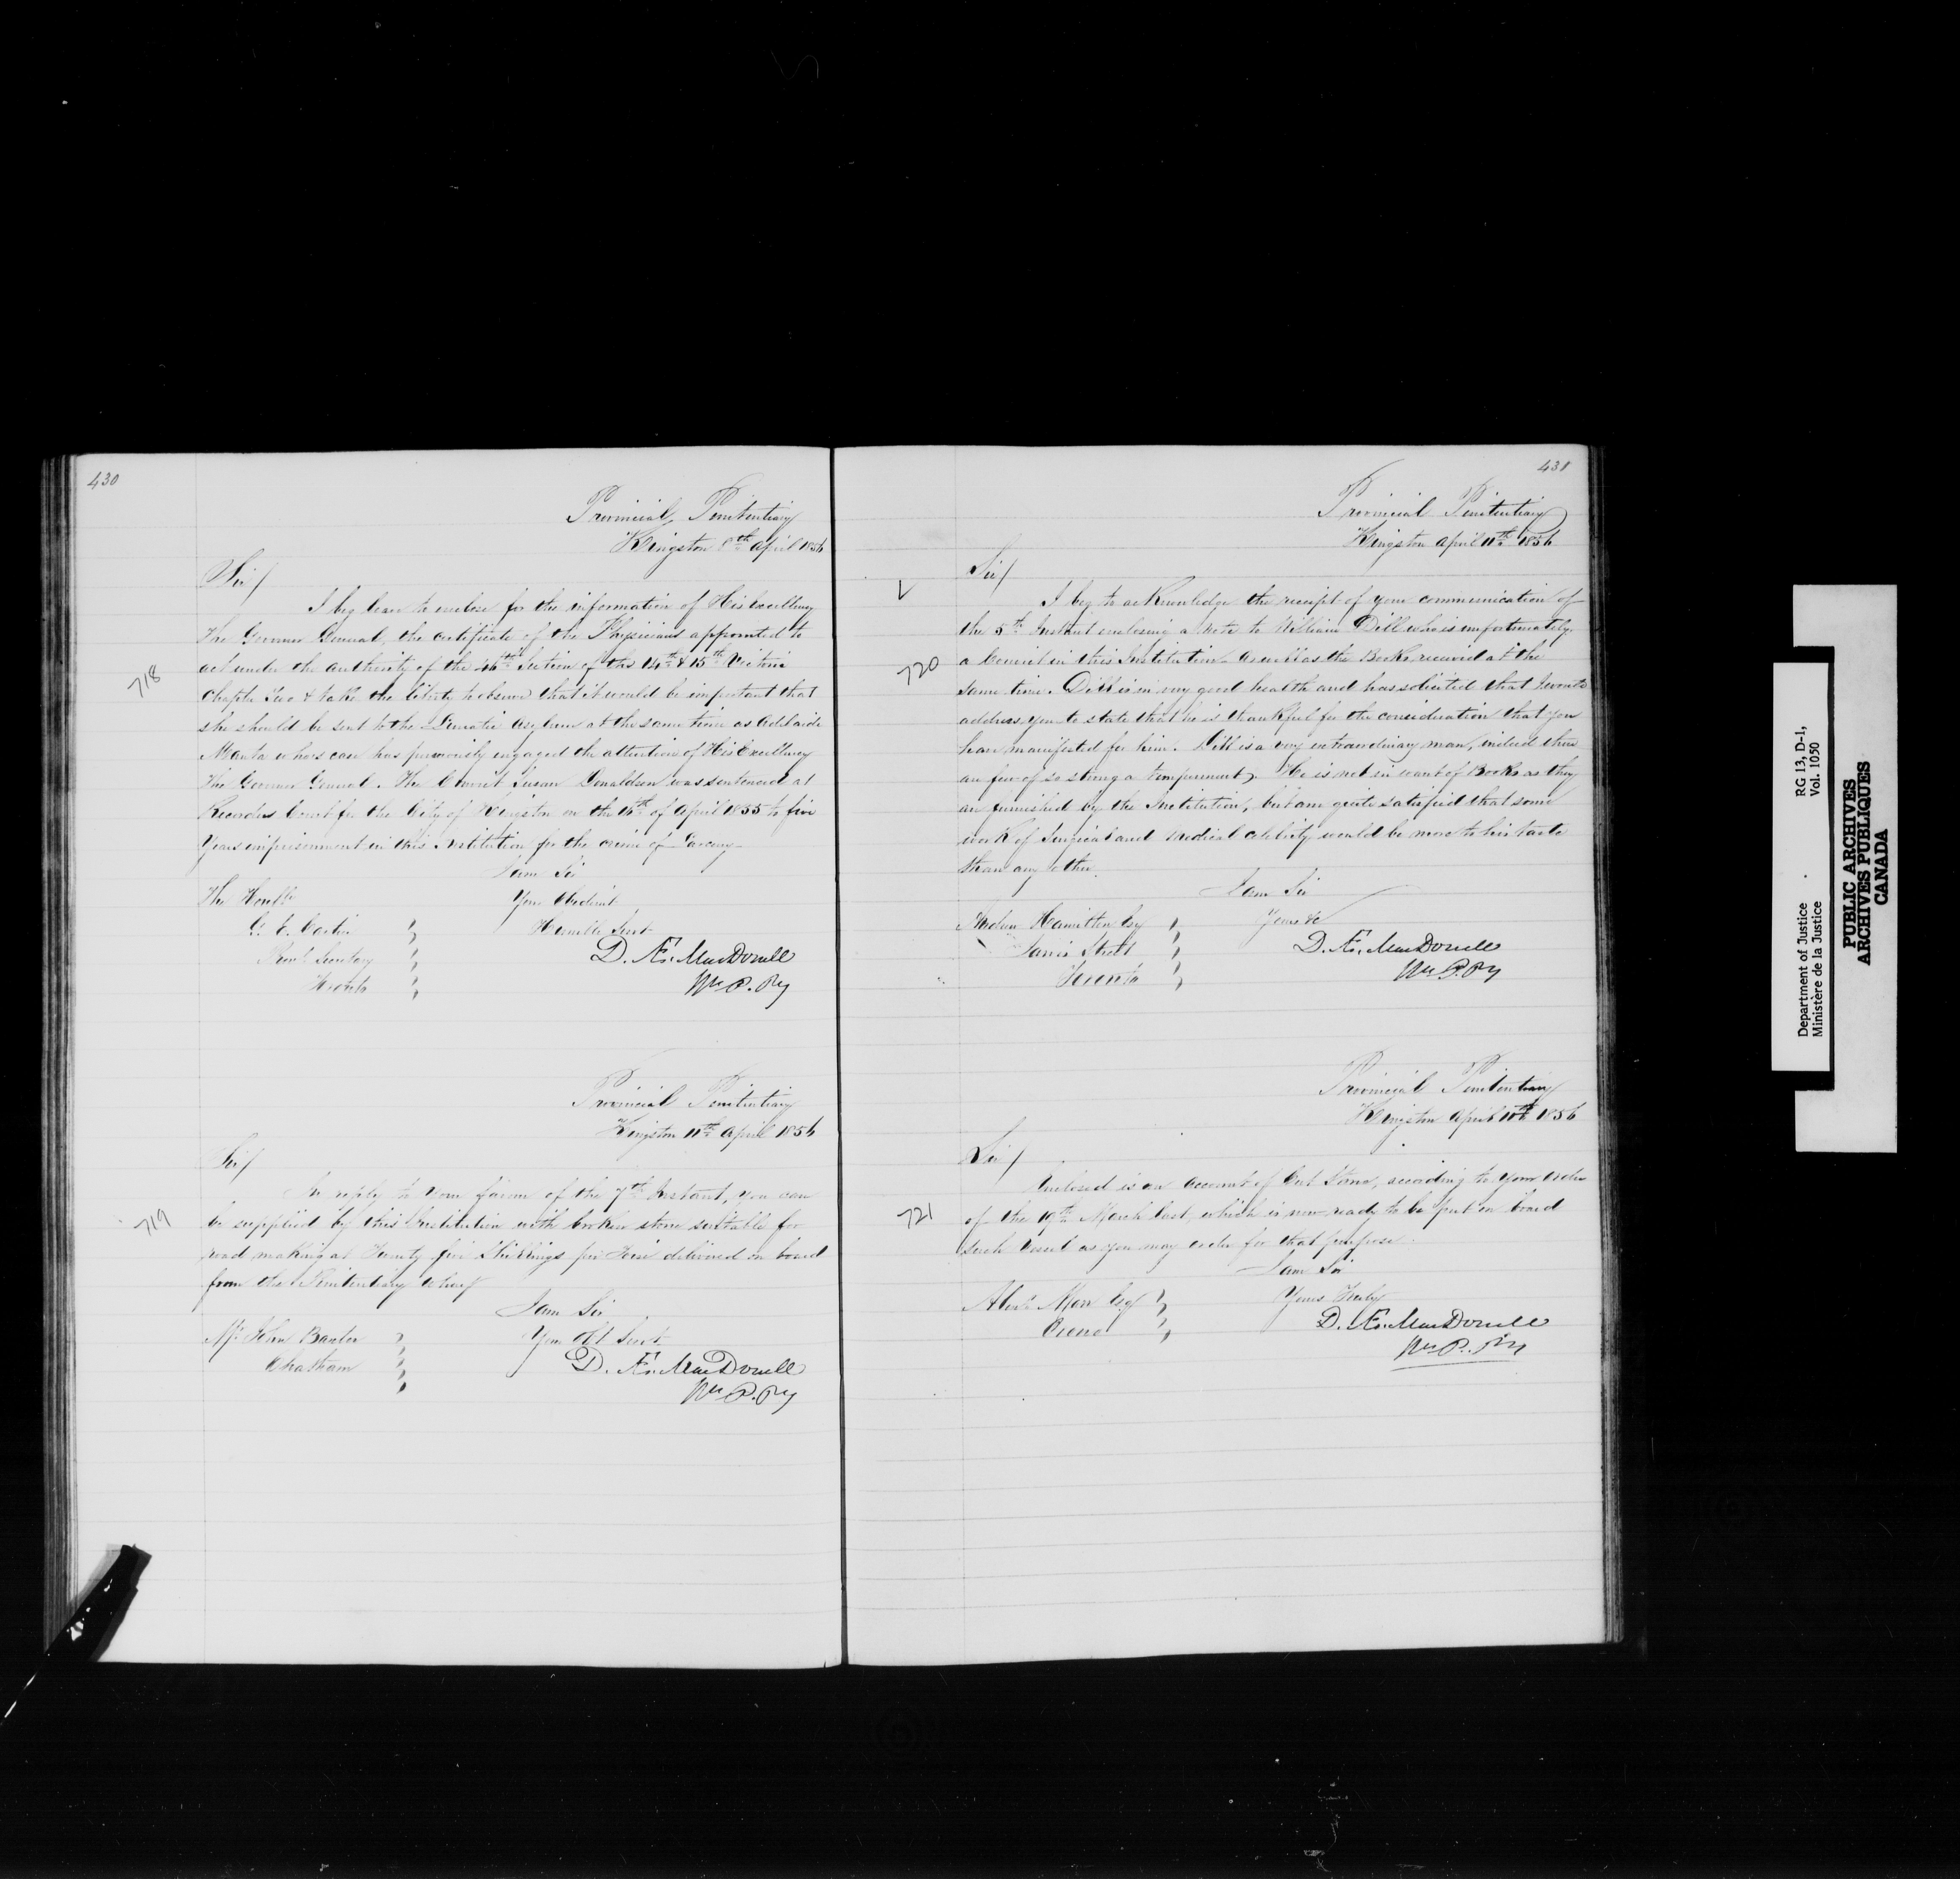 430
Provincial Penitentiary
Kingston 8th April 1856
Sir/
I beg leave to enclose for the information of His Excellency
The Governor General, the certificate of the Physicians appointed to
act under the authority of the 46th Section of the 14th & 15th Victoria
Chapter Two & take the liberty to observe that it would be important that
she should be sent to the Lunatic Asylum at the same time as Adelaide
whose case has previously engaged the attention of His Excellency
The Governor General. The Convict Susan Donaldson was sentenced at
Recorders Court for the City of Kingston on the 16th of April 1855 to five
Years imprisonment in this Institution for the crime of Larceny
718
I am Sir
The Honble
Your Obedient
G. E. Cartier
Humble Servt
Provl Secretary
D. Æ. MacDonell
Toronto
Wn P. Py
Provincial Penitentiary
Kingston 11th April 1856
Sir/
In reply to your favor of the 7th Instant, you can
be supplied by this Institution with broken stone suitable for
road making at Twenty five Shillings per Toise delivered on board
from the Penitentiary wharf
719
I am Sir
Mr John Baxter
Your Obt Servt
Chatham
D. Æ. MacDonell
Wn P. Py
431
Provincial Penitentiary
Kingston April 11th 1856
Sir/
I beg to acknowledge the receipt of your communication of
the 5th Instant enclosing a note to William Dill who is unfortunately
a Convict in this Institution as well as the Books received at the
same time. Dill is in very good health and has solicited that I would
address you to state that he is thankful for the consideration that you
have manifested for him. Dill is a very extraordinary man, indeed there
are few of so strong a temperament. He is not in want of Books as they
are furnished by the Institution, but am quite satisfied that some
work of Surgical and Medical celebrity would be more to his taste
than any other.
720
I am Sir
Andrew Hamilton Esq
Yours &c
Jarvis Street
D. Æ. MacDonell
Toronto
Wn P. Py
Provincial Penitentiary
Kingston April 11th 1856
Sir/
Enclosed is an account of Cut Stone, according to your order
of the 19th March last, which is now ready to be put on board
such Vessel as you may order for that purpose.
721
I am Sir
Yours Truly
Esq
D. Æ. MacDonell
Wn P. Py
Department of Justice
Ministère de la Justice
RG 13, D-1,
Vol. 1050
PUBLIC ARCHIVES
ARCHIVES PUBLIQUES
CANADA